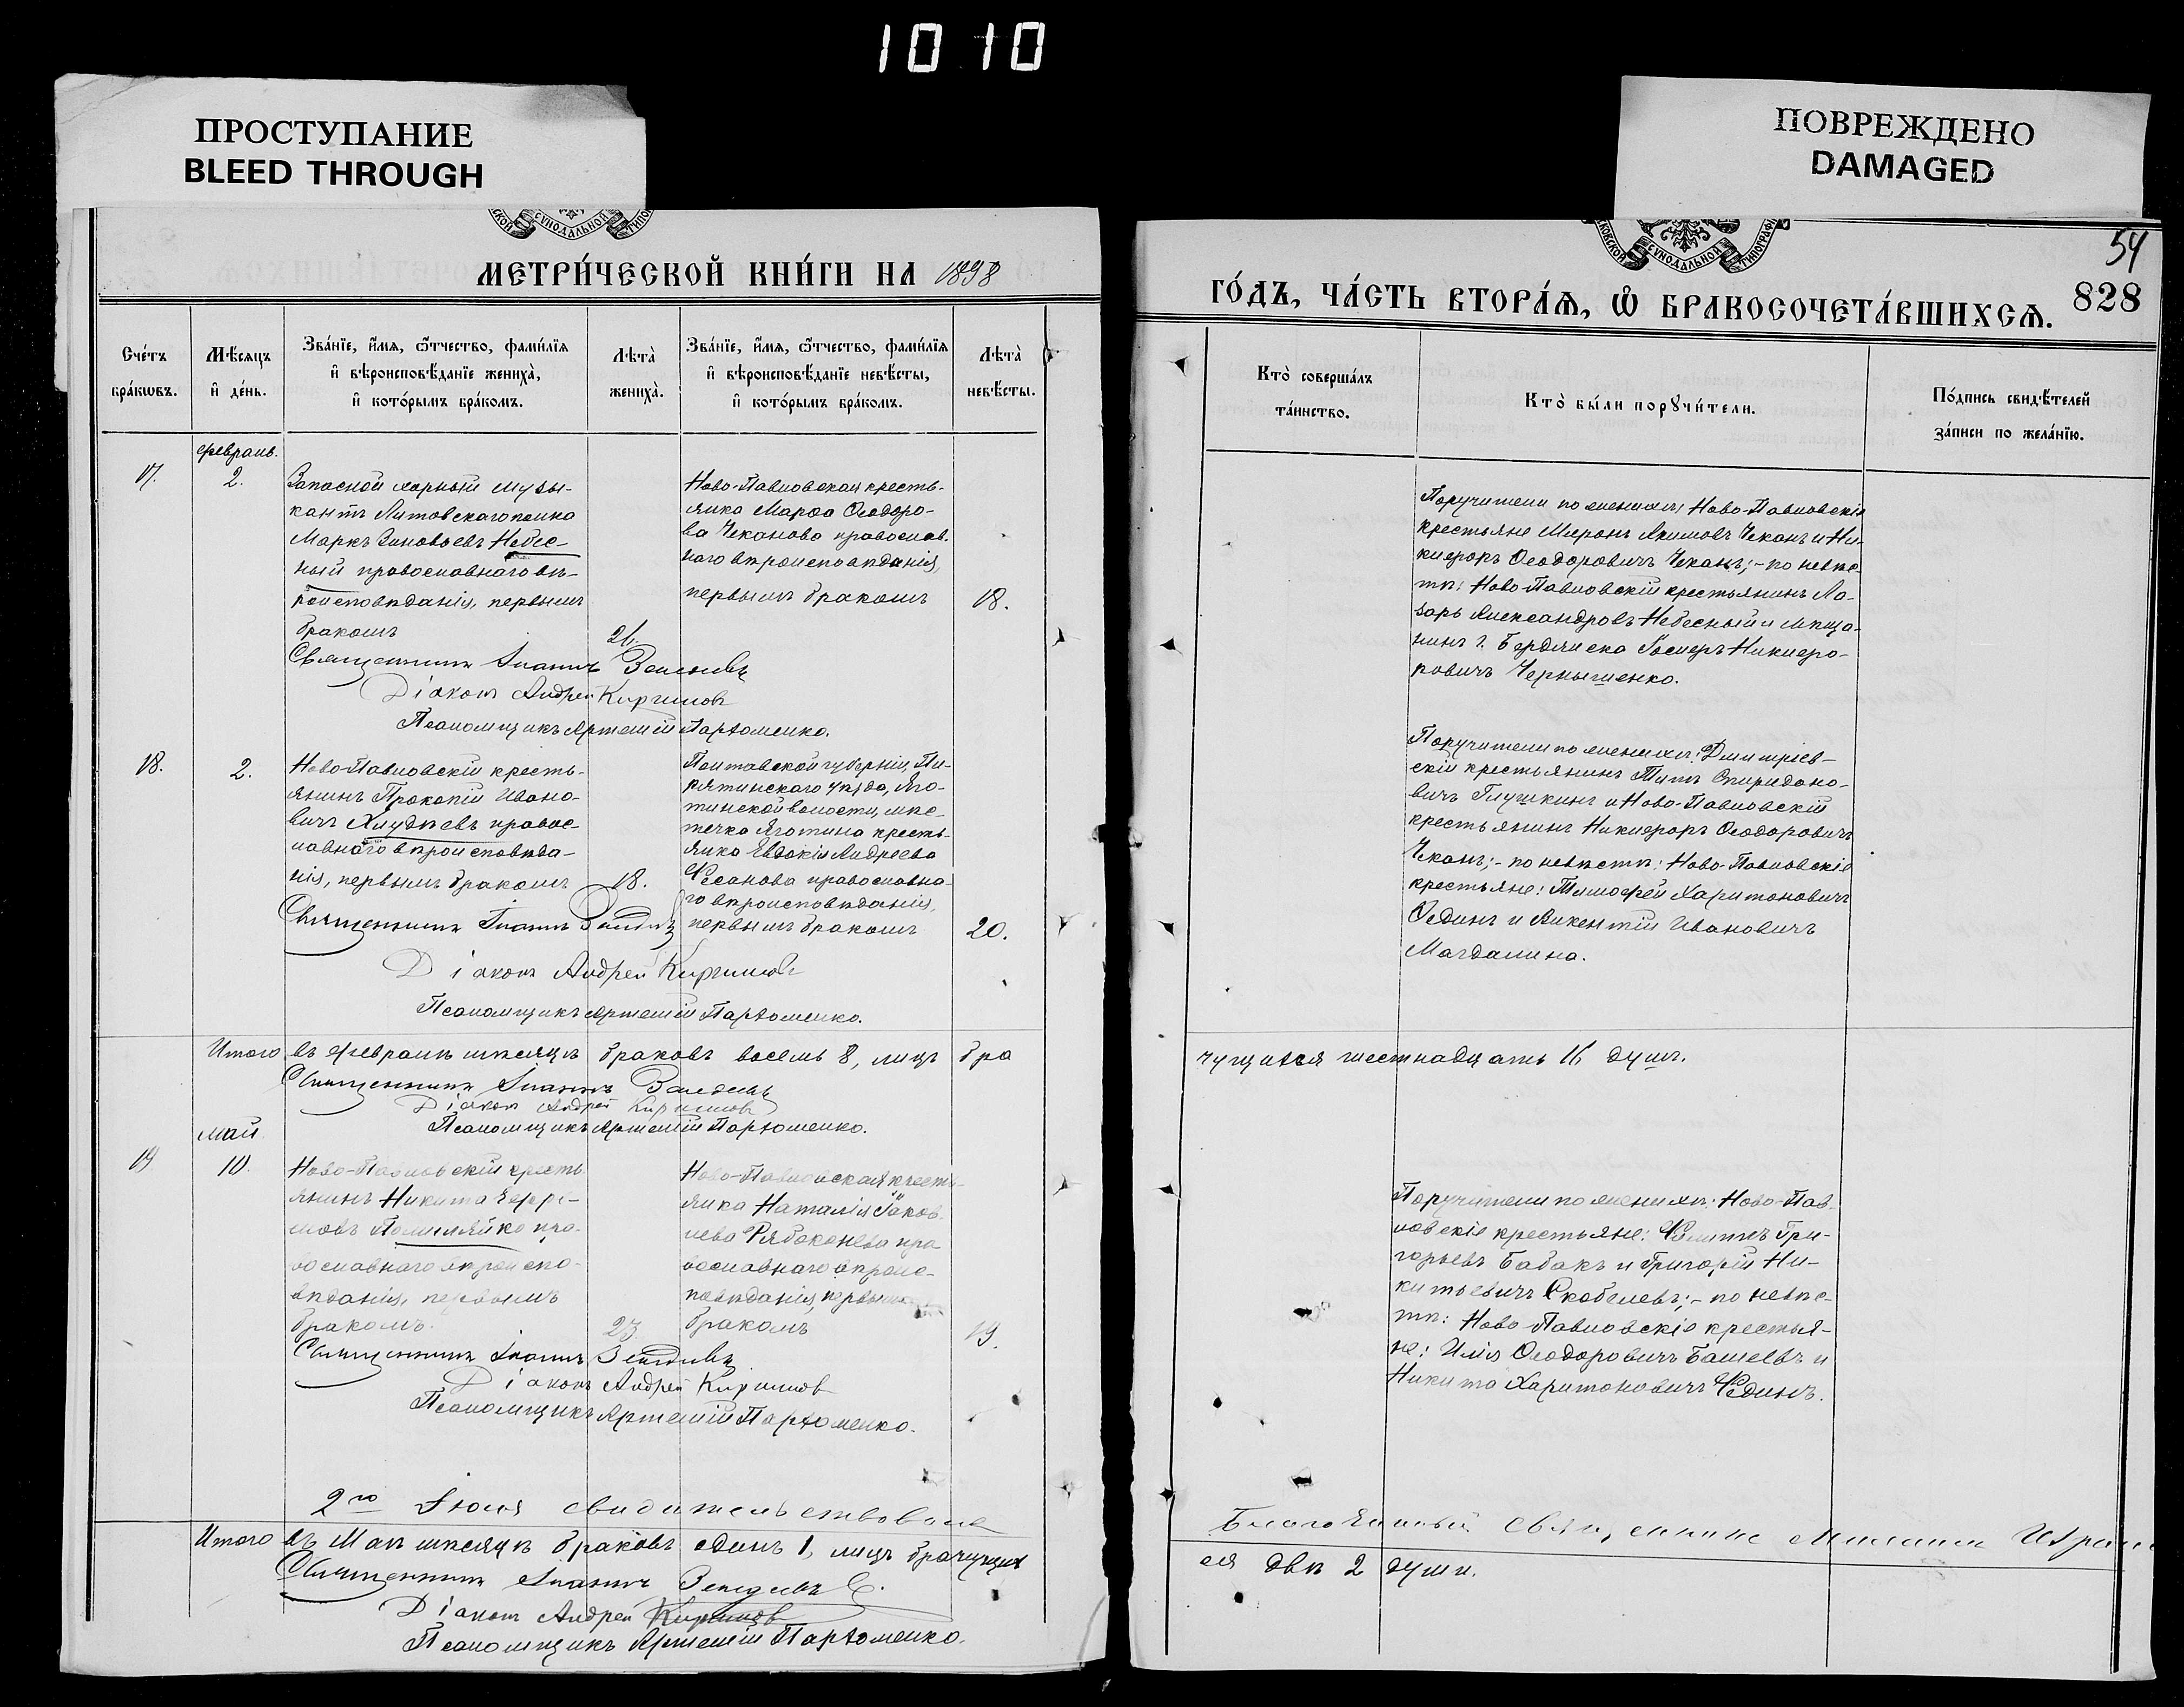 1010
ПРОСТУПАНИЕ
BLEED THROUGH
ПОВРЕЖДЕНО
DAMAGED
МЕТРИ́ЧЕСКОЙ КНИ́ГИ НА 1898
ГО́ДЪ, ЧА́СТЬ ВТОРА́Ѧ, Ѽ БРАКОСОЧЕТА́ВШИХСѦ.
54
828
Сче́тъ
бра́кѡвъ.
Мѣ́сяцъ
и҆ де́нь.
Зва́нїе, и҆́мя, ѻ҆́тчество, фами́лїя
и҆ вѣроисповѣ́данїе жениха̀,
и҆ кото́рымъ бра́комъ.
Лѣта̀
жениха̀.
Зва́нїе, и҆́мя, ѻ҆́тчество, фами́лїя
и҆ вѣроисповѣ́данїе невѣ́сты,
и҆ кото́рымъ бра́комъ.
Лѣта̀
невѣ́сты.
Кто̀ соверша́лъ
та́инство.
Кто̀ бы́ли порꙋчи́тели.
По́дпись свидѣ́телей
за́писи по жела́нїю.
Февраль.
17.
2.
Запасной хорный музы-
кантъ Литовскаго полка
Маркъ Зиновьевъ Небес-
ный православнаго вѣ-
роисповѣданія, первымъ
бракомъ
Ново-Павловская кресть-
янка Марѳа Ѳеодоро-
ва Чеканова православ-
наго вѣроисповѣданія,
первымъ бракомъ
18.
Священникъ Іоаннъ
Діаконъ Андрей
Псаломщикъ Артемій Пархоменко.
Поручители по женихѣ: Ново-Павловскіе
крестьяне Миронъ Акимовъ Чеканъ и Ни-
кифоръ Ѳеодоровичъ Чеканъ; - по невѣс-
тѣ: Ново-Павловскій крестьянинъ Ла-
зарь Александровъ Небесный и мѣща-
нинъ г. Бердянска Іосифъ Никифо-
ровичъ Чернышенко.
18.
2.
Ново-Павловскій кресть-
янинъ Прокопій Ивано-
вичъ Хлудѣевъ правос-
лавнаго вѣроисповѣда-
нія, первымъ бракомъ
18.
Полтавской губерніи, Пи-
рятинскаго уѣзда, Яго-
тинской волости, мѣс-
течка Яготина кресть-
янка Евдокія Андреева
Фесанова православна-
го вѣроисповѣданія,
первымъ бракомъ
20.
Священникъ Іоаннъ
Діаконъ Андрей
Псаломщикъ Артемій Пархоменко.
Поручители по женихѣ: Дмитріев-
скій крестьянинъ Титъ Спиридоно-
вичъ Глушкинъ и Ново-Павловскій
крестьянинъ Никифоръ Ѳеодоровичъ
Чеканъ; - по невѣстѣ: Ново-Павловскіе
крестьяне: Тимофей Харитоновичъ
Ѳединъ и Викентій Ивановичъ
Магдалина.
Итого въ Февралѣ мѣсяцѣ браковъ восемь 8, лицъ бра
чущихся шестнадцать 16 душъ.
Священникъ Іоаннъ
Діаконъ Андрей
Псаломщикъ Артемій Пархоменко.
май
19
10.
Ново-Павловскій кресть
янинъ Никита Ефи-
мовъ пра-
вославнаго вѣроиспо-
вѣданія, первымъ
бракомъ.
23
Ново-Павловская кресть-
янка Наталія Іаков-
лева Рябоконева пра
вославнаго вѣроис-
повѣданія, первымъ
бракомъ
19.
Священникъ Іоаннъ
Діаконъ Андрей
Псаломщикъ Артемій Пархоменко.
Поручители по женихѣ: Ново-Пав-
ловскіе крестьяне: Филиппъ Гри-
горьевъ Бабакъ и Григорій Ни-
китьевичъ Скобелевъ; - по невѣс-
тѣ: Ново-Павловскіе крестья-
не: Илія Ѳеодоровичъ Башевъ и
Никита Харитоновичъ Фединъ.
2го Іюля свидѣтельствовалъ
Благочинный священникъ
Итого въ Маѣ мѣсяцѣ браковъ одинъ 1, лицъ брачущих
ся двѣ 2 души.
Священникъ Іоаннъ
Діаконъ Андрей
Псаломщикъ Артемій Пархоменко.